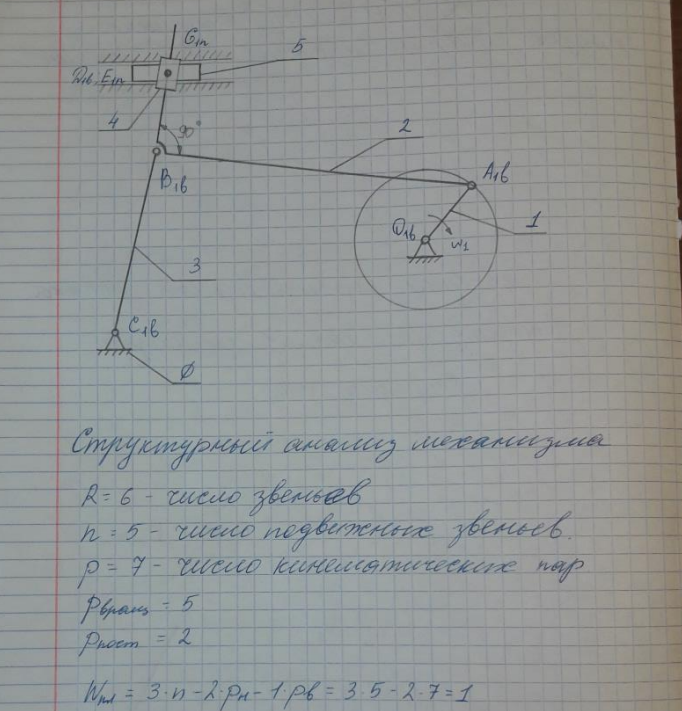 G₁ₙ
5
D₁в, E₁ₙ
4
90°
2
B₁в
A₁в
O₁в
ω₁
1
3
C₁в
0
Структурный анализ механизма
R = 6 - число звеньев
n = 5 - число подвижных звеньев.
p = 7 - число кинематических пар
Pвращ = 5
Pпост = 2
Wпл = 3·n - 2·pн - 1·pв = 3·5 - 2·7 = 1